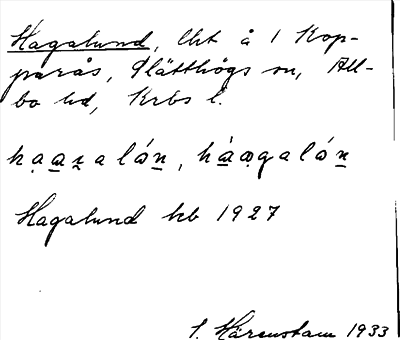 Hagalund, lht å 1 Kop-
parås, Slätthögs sn, All-
bo hd, Krbs l.
Hagalund kb 1927
S. Härenstam 1933